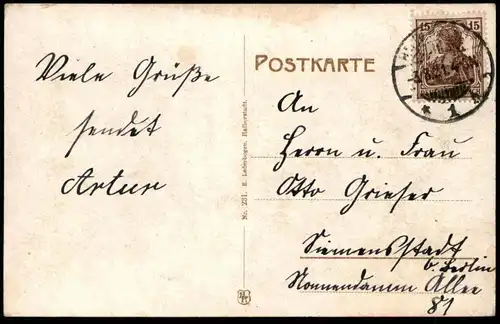 Viele Grüße
sendet
Artur
POSTKARTE
15 15
* 1 *
An
Herrn u. Frau
Otto Grieser
Siemensstadt
b. Berlin
Nonnendamm Allee
81
Nr. 231. E. Lederbogen, Halberstadt.